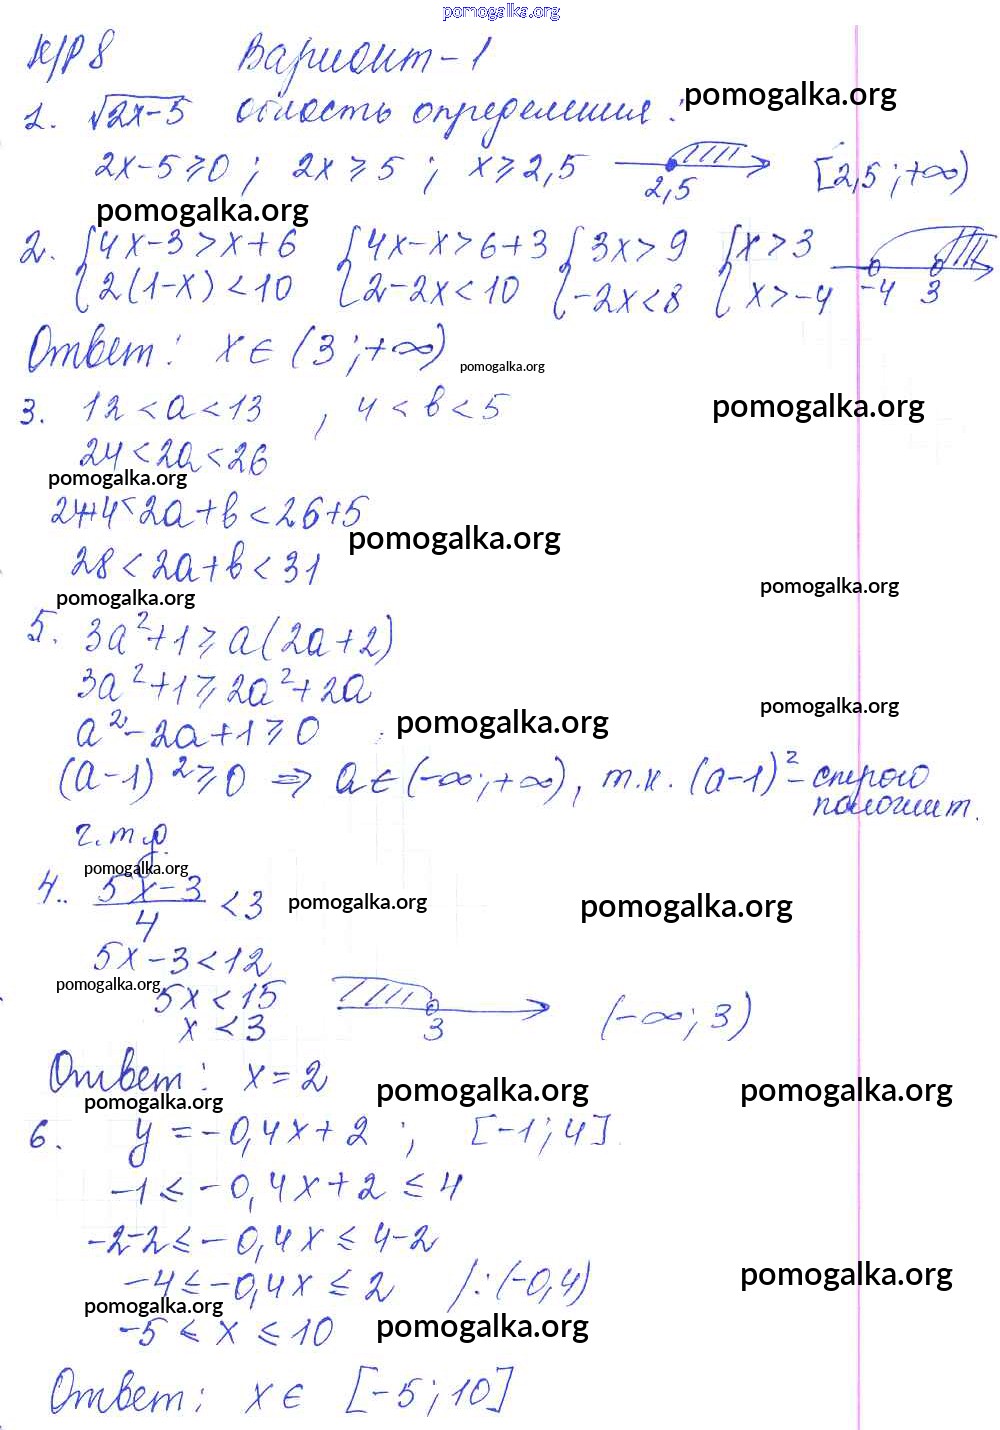 pomogalka.org
К/Р 8 Вариант - 1
1. √2x-5 область определения: pomogalka.org
2x-5⩾0; 2x⩾5; x⩾2,5 2,5 [2,5;+∞)
pomogalka.org
2. {4x-3>x+6 {4x-x>6+3 {3x>9 {x>3
{2(1-x)<10 {2-2x<10 {-2x<8 {x>-4 -4 3
Ответ: x∈(3;+∞)
pomogalka.org
3. 12<a<13, 4<b<5 pomogalka.org
24<2a<26
pomogalka.org
24+4<2a+b<26+5
pomogalka.org
28<2a+b<31
pomogalka.org
pomogalka.org
5. 3a²+1⩾a(2a+2)
3a²+1⩾2a²+2a
pomogalka.org
a²-2a+1⩾0 pomogalka.org
(a-1)²⩾0 ⇒ a∈(-∞;+∞), т.к. (a-1)² - строго
положит.
ч.т.д.
pomogalka.org
4.. 5x-3/4 <3 pomogalka.org pomogalka.org
5x-3<12
pomogalka.org
5x<15
x<3 3 (-∞;3)
Ответ: x=2
pomogalka.org pomogalka.org pomogalka.org
6. y=-0,4x+2; [-1;4].
-1≤-0,4x+2≤4
-2-2≤-0,4x≤4-2
pomogalka.org
-4≤-0,4x≤2 /:(-0,4)
pomogalka.org
-5≤x≤10 pomogalka.org
Ответ: x∈ [-5;10]